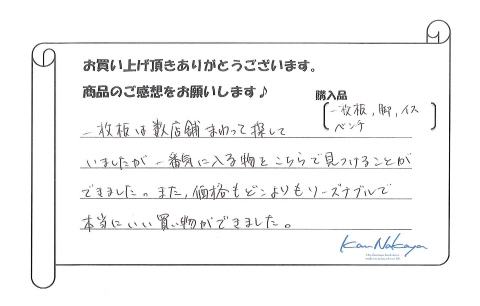 お買い上げ頂きありがとうございます。
商品のご感想をお願いします♪
購入品
一枚板,脚,イス
ベンチ
一枚板は数店舗まわって探して
いましたが一番気に入る物をこちらで見つけることが
できました。また,価格もどこよりもリーズナブルで
本当にいい買い物ができました。
KanNakaya